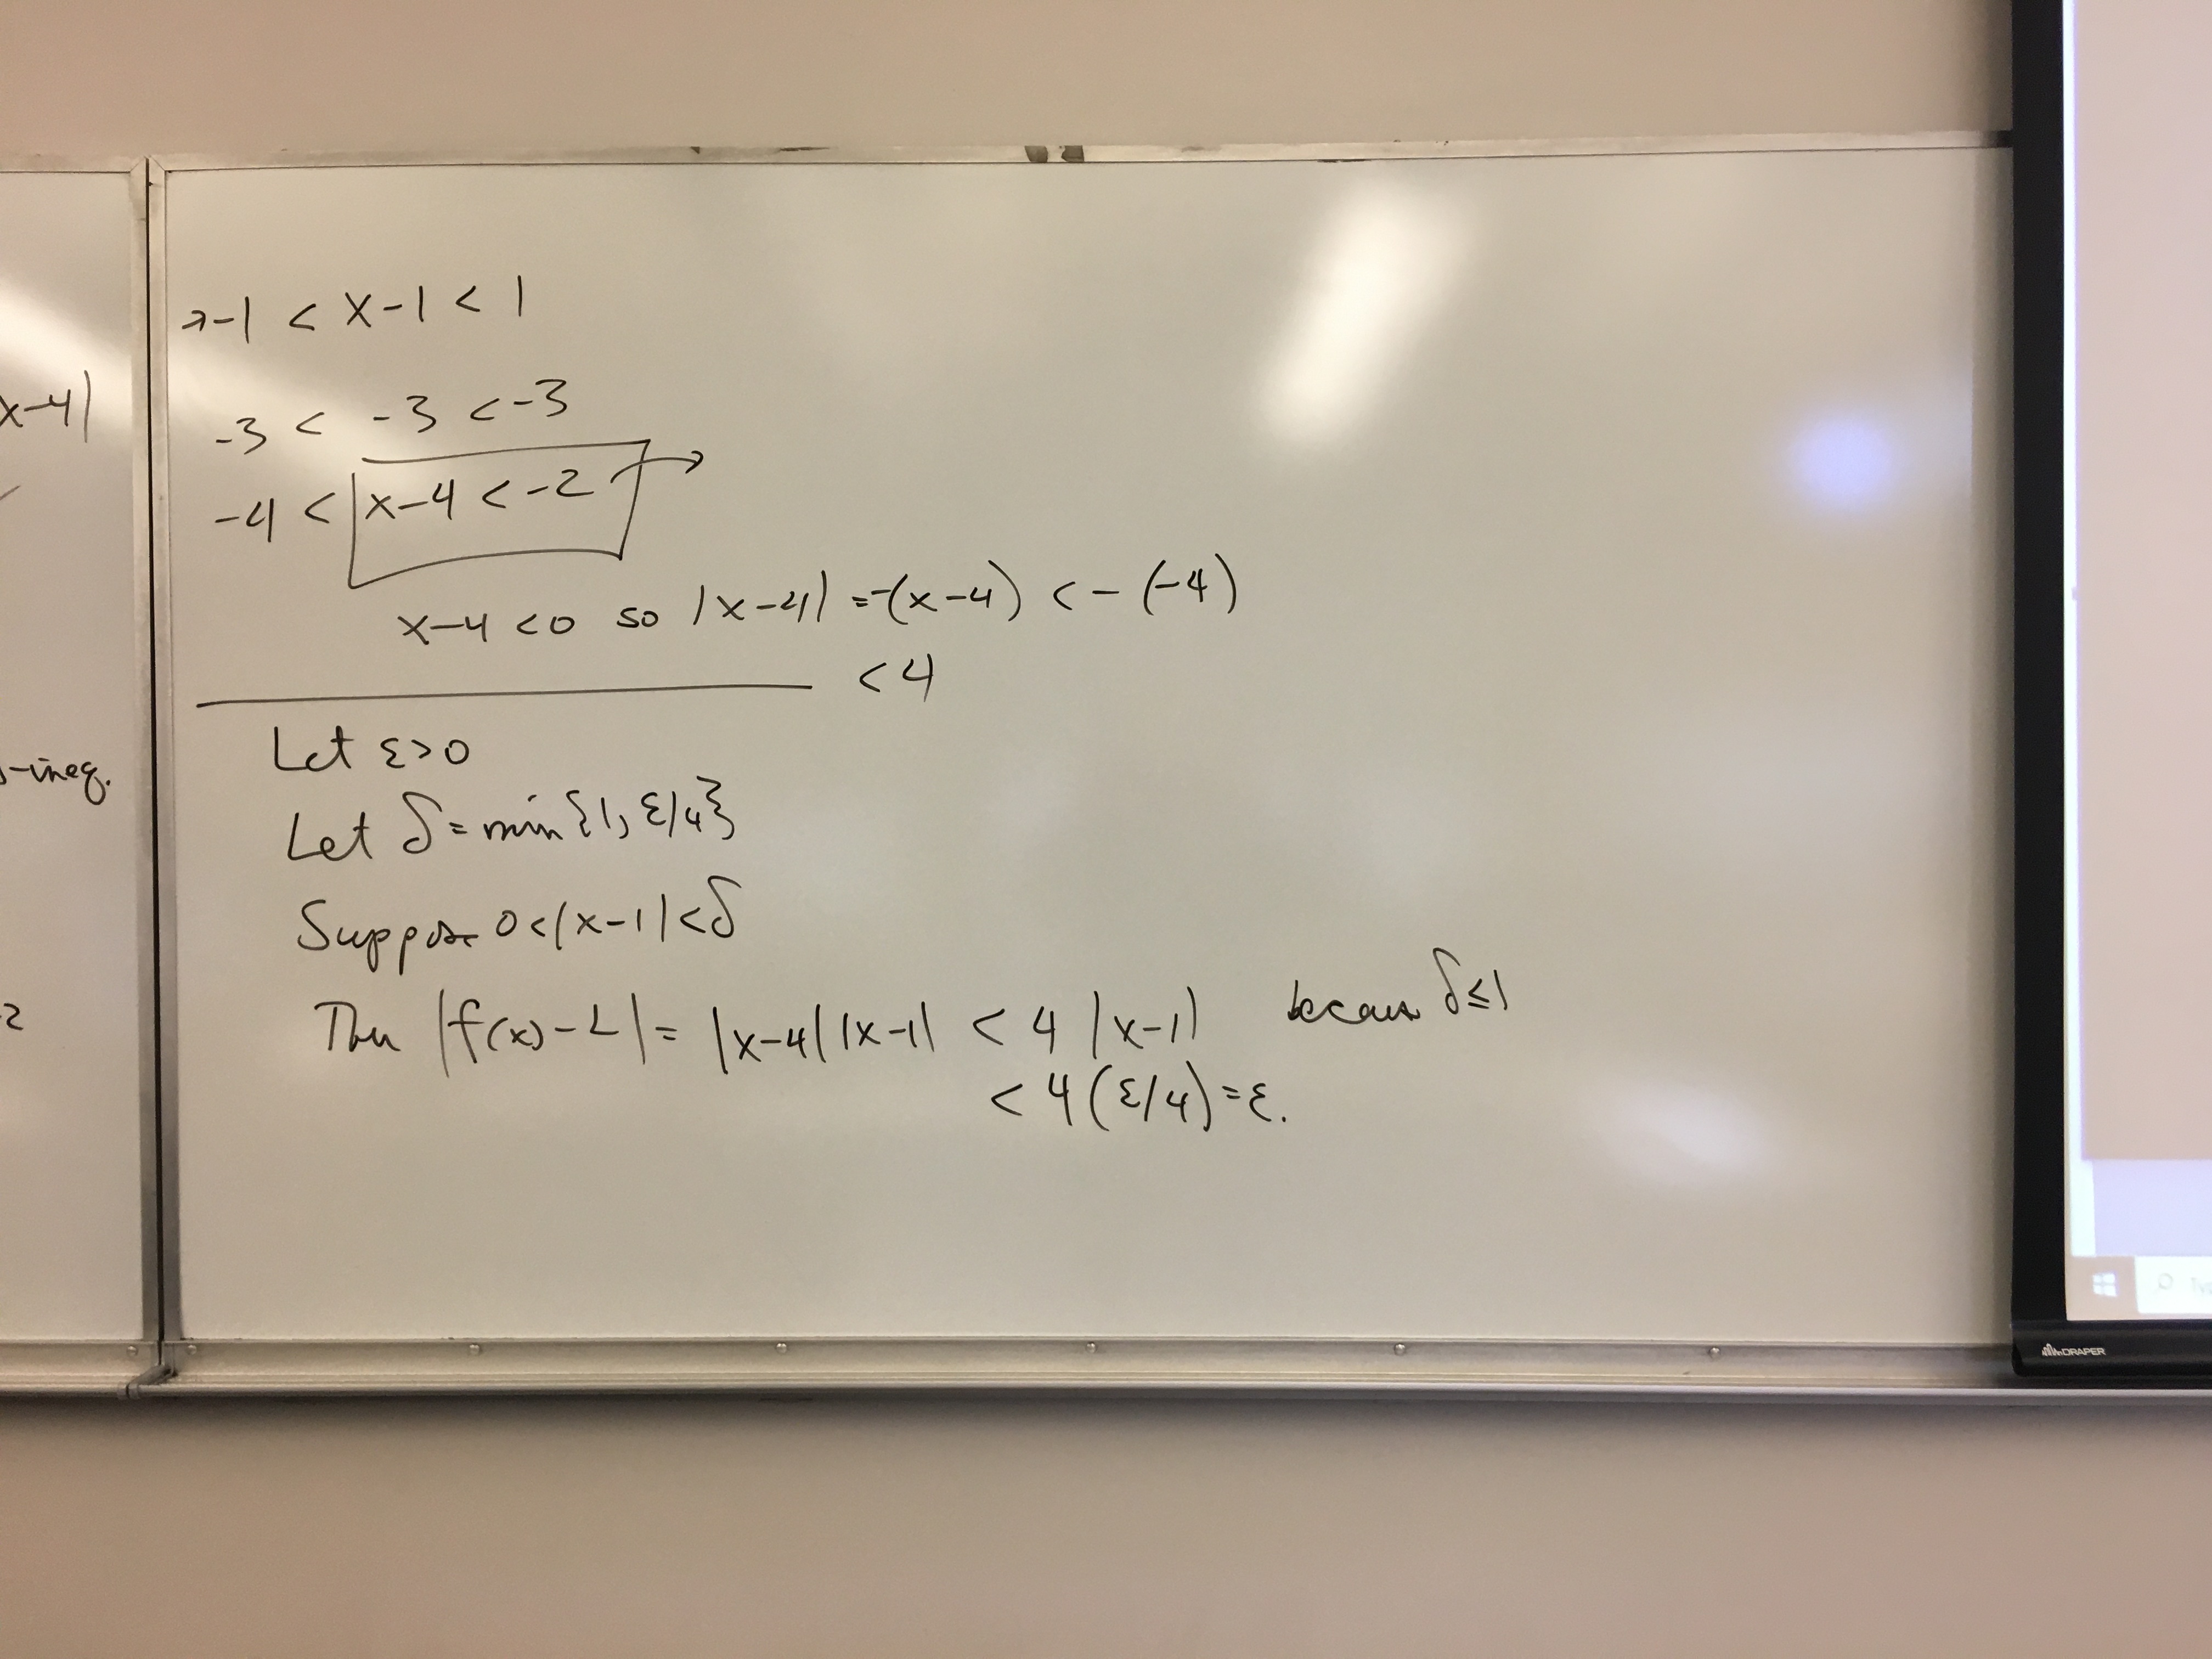 x-4|
s-ineq.
2
→ -1 < x-1 < 1
-3 < -3 < -3
-4 < x-4 < -2 →
x-4 < 0 so |x-4| = -(x-4) < -(-4)
< 4
Let ε>0
Let δ = min{1, ε/4}
Suppose 0<|x-1|<δ
Then |f(x)-L| = |x-4||x-1| < 4|x-1| because δ≤1
< 4(ε/4) = ε.
DRAPER